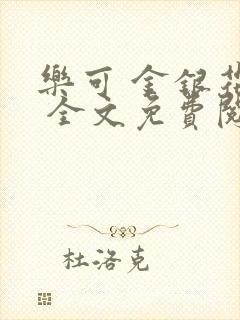 樂可 金銀花
全文免費閱
杜洛克